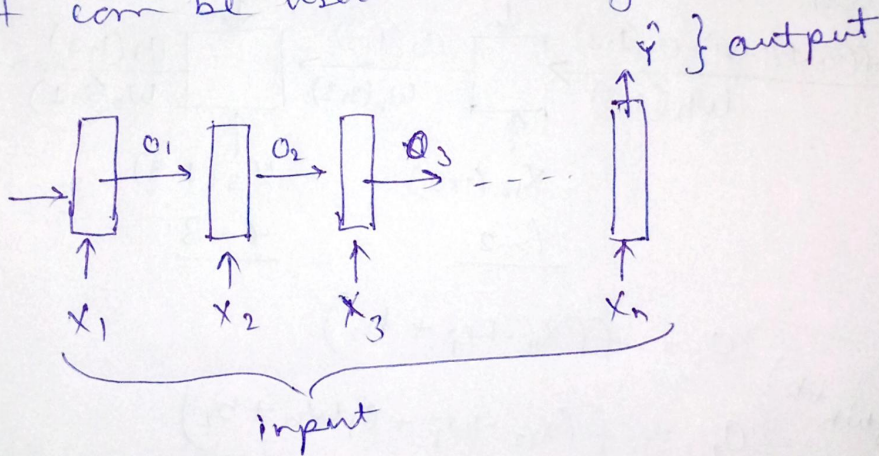 can be
Ŷ } output
O1 O2 O3
X1 X2 X3 Xn
input